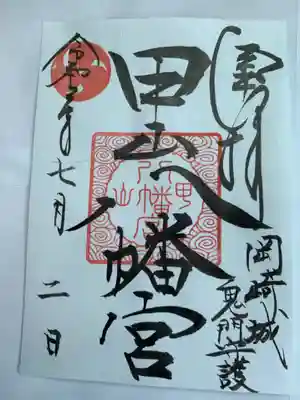 奉拝
岡崎城
鬼門守護
甲山八幡宮
令和二年七月二日